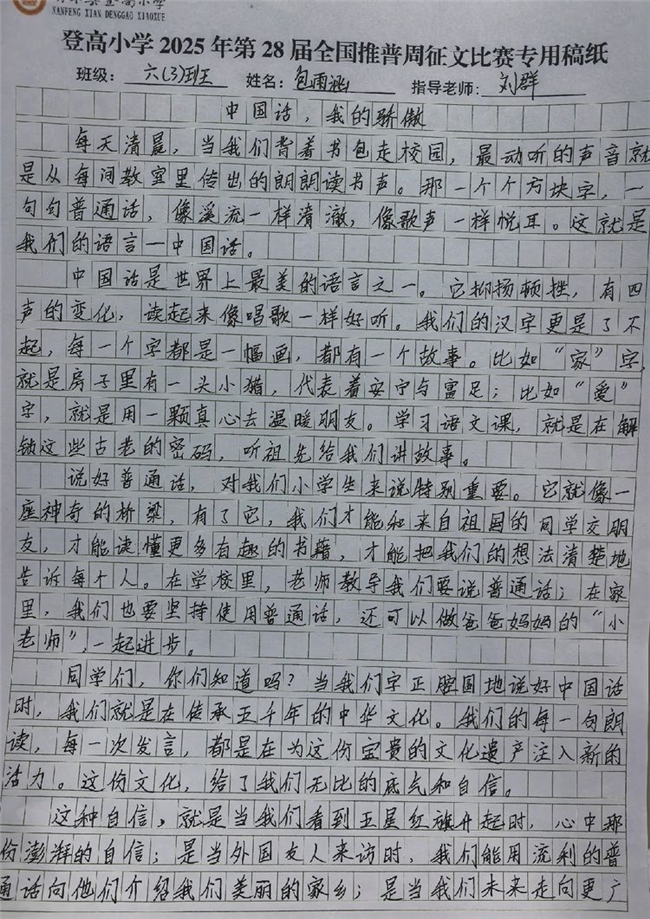 NANFENG XIAN DENGGAO XIAOXUE
登高小学2025年第28届全国推普周征文比赛专用稿纸
班级：六(3)班 姓名：包雨涵 指导老师：刘群
中国话，我的骄傲
每天清晨，当我们背着书包走校园，最动听的声音就
是从每间教室里传出的朗朗读书声。那一个个方块字，一
句句普通话，像溪流一样清澈，像歌声一样悦耳。这就是
我们的语言—中国话。
中国话是世界上最美的语言之一。它抑扬顿挫，有四
声的变化，读起来像唱歌一样好听。我们的汉字更是了不
起，每一个字都是一幅画，都有一个故事。比如“家”字，
就是房子里有一头小猪，代表着安宁与富足；比如“爱”
字，就是用一颗真心去温暖朋友。学习语文课，就是在解
锁这些古老的密码，听祖先给我们讲故事。
说好普通话，对我们小学生来说特别重要。它就像一
座神奇的桥梁，有了它，我们才能和来自祖国的同学交朋
友，才能读懂更多有趣的书籍，才能把我们的想法清楚地
告诉每个人。在学校里，老师教导我们要说普通话；在家
里，我们也要坚持使用普通话，还可以做爸爸妈妈的“小
老师”，一起进步。
同学们，你们知道吗？当我们字正腔国地说好中国话
时，我们就是在传承五千年的中华文化。我们的每一句朗
读，每一次发言，都是在为这份宝贵的文化遗产注入新的
活力。这份文化，给了我们无比的底气和自信。
这种自信，就是当我们看到五星红旗升起时，心中那
份澎湃的自信；是当外国友人来访时，我们能用流利的普
通话向他们介绍我们美丽的家乡；是当我们未来走向更广